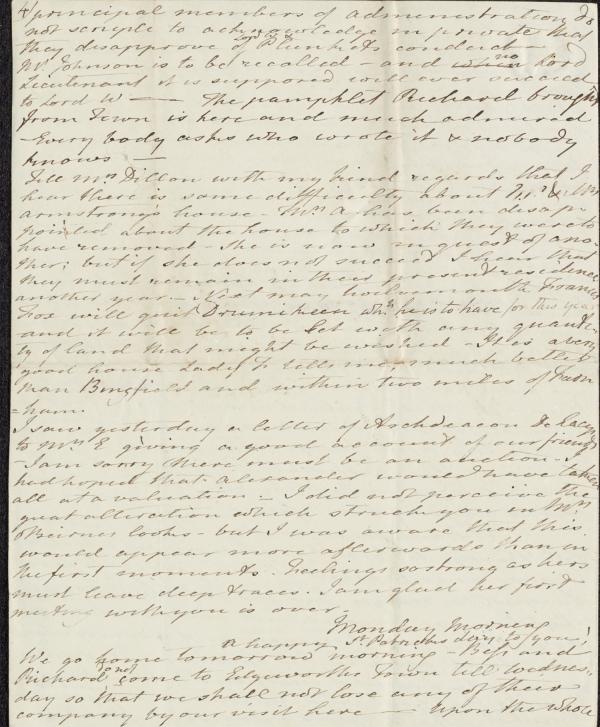 4/ principal members of administration do
not scruple to acknowledge in private that
they disapprove of Lord Plunkets conduct —
Mr Johnson is to be recalled — and no Lord
Lieutenant it is supposed will ever succeed
to Lord W —— The pamphlet Richard brought
from Town is here and much admired
Every body asks who wrote it & nobody
knows —
Tell Mrs Dillon with my kind regards that I
hear there is some difficulty about Mr & Mrs
Armstrongs house. Mrs A has been disap
pointed about the house to which they were to
have removed – She is now in quest of ano
ther; but if she does not succeed I hear that
they must remain in their present residence
another year — Next may twelvemonth Francis
Fox will quit Drumkeen wh. he is to have for this year
and it will be to be let with any quanti
ty of land that might be wished – It is a very
good house Lady F tells me, much better
than Bingfield and within two miles of Farn
=ham.
I saw yesterday a letter of Archdeacon de Lacy
to Mrs E giving a good account of our friend
– I am sorry there must be an auction – I
had hoped that Alexander would have taken
all at a valuation – I did not perceive the
great alteration which struck you in Mrs
OBeirnes looks – but I was aware that this
would appear more afterwards than in
the first moments. Feelings so strong as hers
must leave deep traces. I am glad her first
meeting with you is over –
Monday Morning
A happy St Patricks day to you!
We go home tomorrow morning – Bess and
Richard come to Edgeworths Town till Wednes
day so that we shall not lose any of their
company by our visit here — Upon the whole